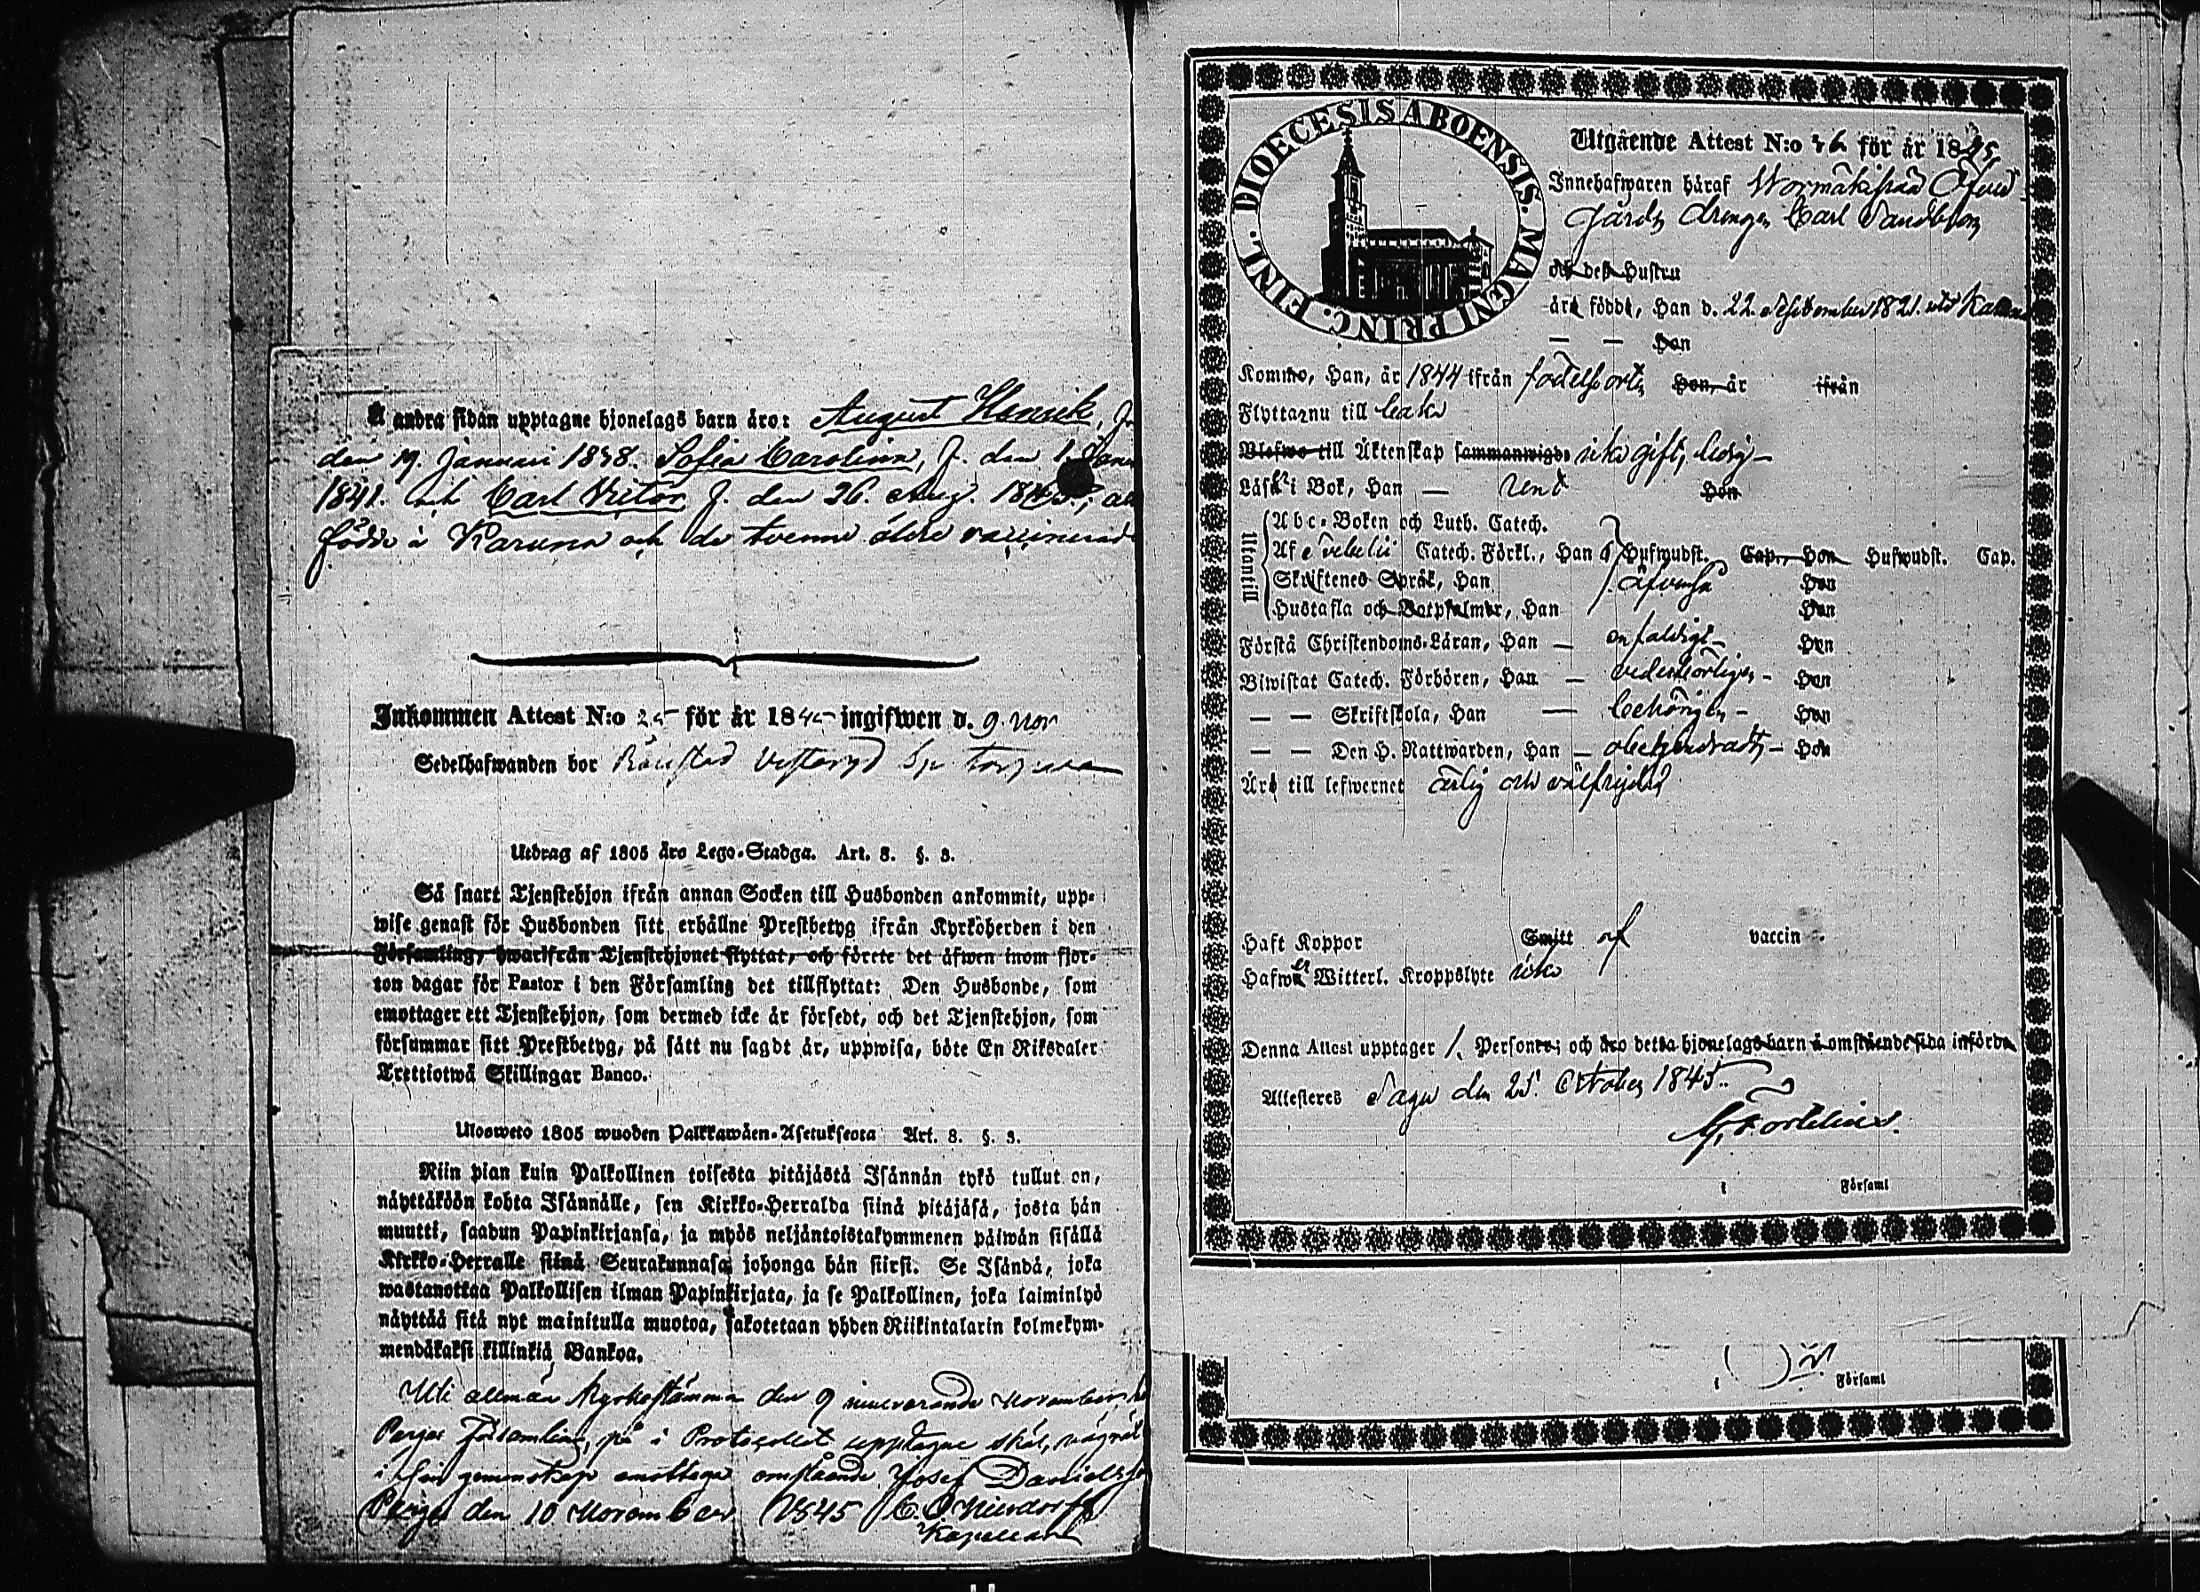 Å andra sidan upptagne hjonelags barn äro: August Henrik, f.
den 19. Januari 1838. Sofia Carolina, f. den 1.
1841. och Carl Victor f. den 26. Aug.
födde i Karuna och de tvenne äldre vaccinerade
Inkommen Attest N:o 25 för år 1845 ingifwen d. 9 Nov
Sedelhafwanden bor
Utdrag af 1805 års Lego-Stadga. Art. 8. §. 3.
Så snart Tjenstehjon ifrån annan Socken till Husbonden ankommit, upp-
wise genast för Husbonden sitt erhållne Prestbetyg ifrån Kyrkoherden i den
Församling, hwarifrån Tjenstehjonet flyttat, och förete det äfwen inom fjor-
ton dagar för Pastor i den Församling det tillflyttat: Den Husbonde, som
emottager ett Tjenstehjon, som dermed icke är försedt, och det Tjenstehjon, som
försummar sitt Prestbetyg, på sätt nu sagdt är, uppwisa, böte En Riksdaler
Trettiotwå Skillingar Banco.
Ulosweto 1805 wuoden Palkkawäen-Asetuksesta Art. 8. §. 3.
Niin pian kuin Palkollinen toisesta pitäjästä Isännän tykö tullut on,
näyttäköön kohta Isännälle, sen Kirkko-Herralda siinä pitäjäsä, josta hän
muutti, saadun Papinkirjansa, ja myös neljäntoistakymmenen päiwän sisällä
Kirkko-Herralle siinä Seurakunnasa, johonga hän siirsi. Se Isändä, joka
wastanottaa Palkollisen ilman Papinkirjata, ja se Palkollinen, joka laiminlyö
näyttää sitä nyt mainitulla muotoa, sakotetaan yhden Riikintalarin kolmekym-
mendäkaksi killinkiä Bankoa.
Uti allmän Kyrkostämma den 9 innevarande November,
Församling, på i Protocollet upptagne skäl,
i sin gemenskap emottaga omstående Josef
den 10 November 1845
Kapellan
DIOECESIS ABOENSIS. MAGNI PRINC. FINL.
Utgående Attest N:o 46 för år 1845.
Innehafwaren häraf
Gårds drengen Carl Sandblom
och dess Hustru
äro födde, Han d. 22. September 1821. uti Karuna
— — Hon
Kommo, Han, år 1844 ifrån födelseorten Hon, år ifrån
Flyttar nu till
Blefwo till Äktenskap sammanwigde icke gift, ledig —
Läser i Bok, Han — rent Hon
Utantill
Abc-Boken och Luth. Catech.
Af Svebelii Catech. Förkl., Han Hufwudst. Cap., Hon Hufwudst. Cap.
Skriftenes Språk, Han äfvenså Hon
Hustafla och Botpsalmer, Han Hon
Förstå Christendoms-Läran, Han — enfaldigt — Hon
Biwistat Catech. Förhören, Han — vederbörligen — Hon
— — Skriftskola, Han — behörigen — Hon
— — Den H. Nattwarden, Han — obehindradt — Hon
Äro till lefwernet ärlig och välfrejdad
Haft Koppor Smitt af vaccin
Hafwer Witterl. Kroppslyte icke
Denna Attest upptager 1. Personer; och äro detta hjonelags barn å omstående sida införda
Attesteres Sagu den 25. October 1845.
i Församl
i Församl